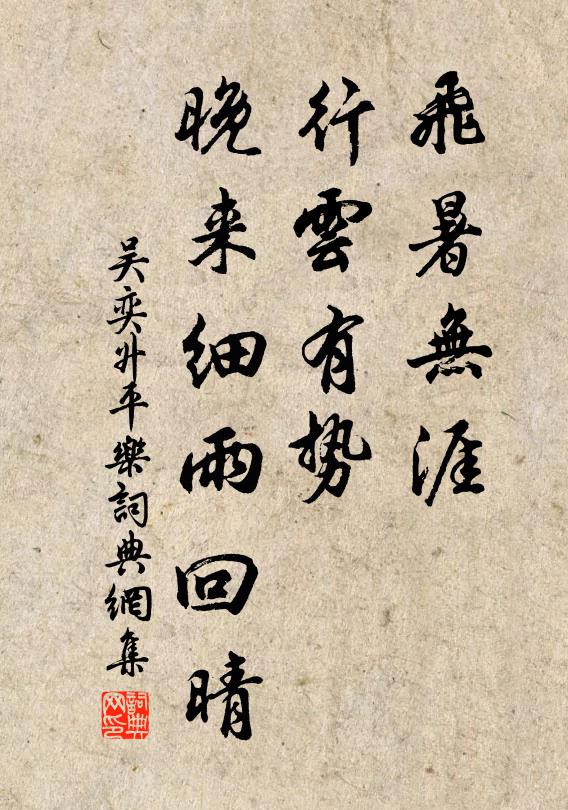 飛暑無涯
行雲有勢
晚来细雨回晴
吴奕升平樂詞典網集
詞典
网印